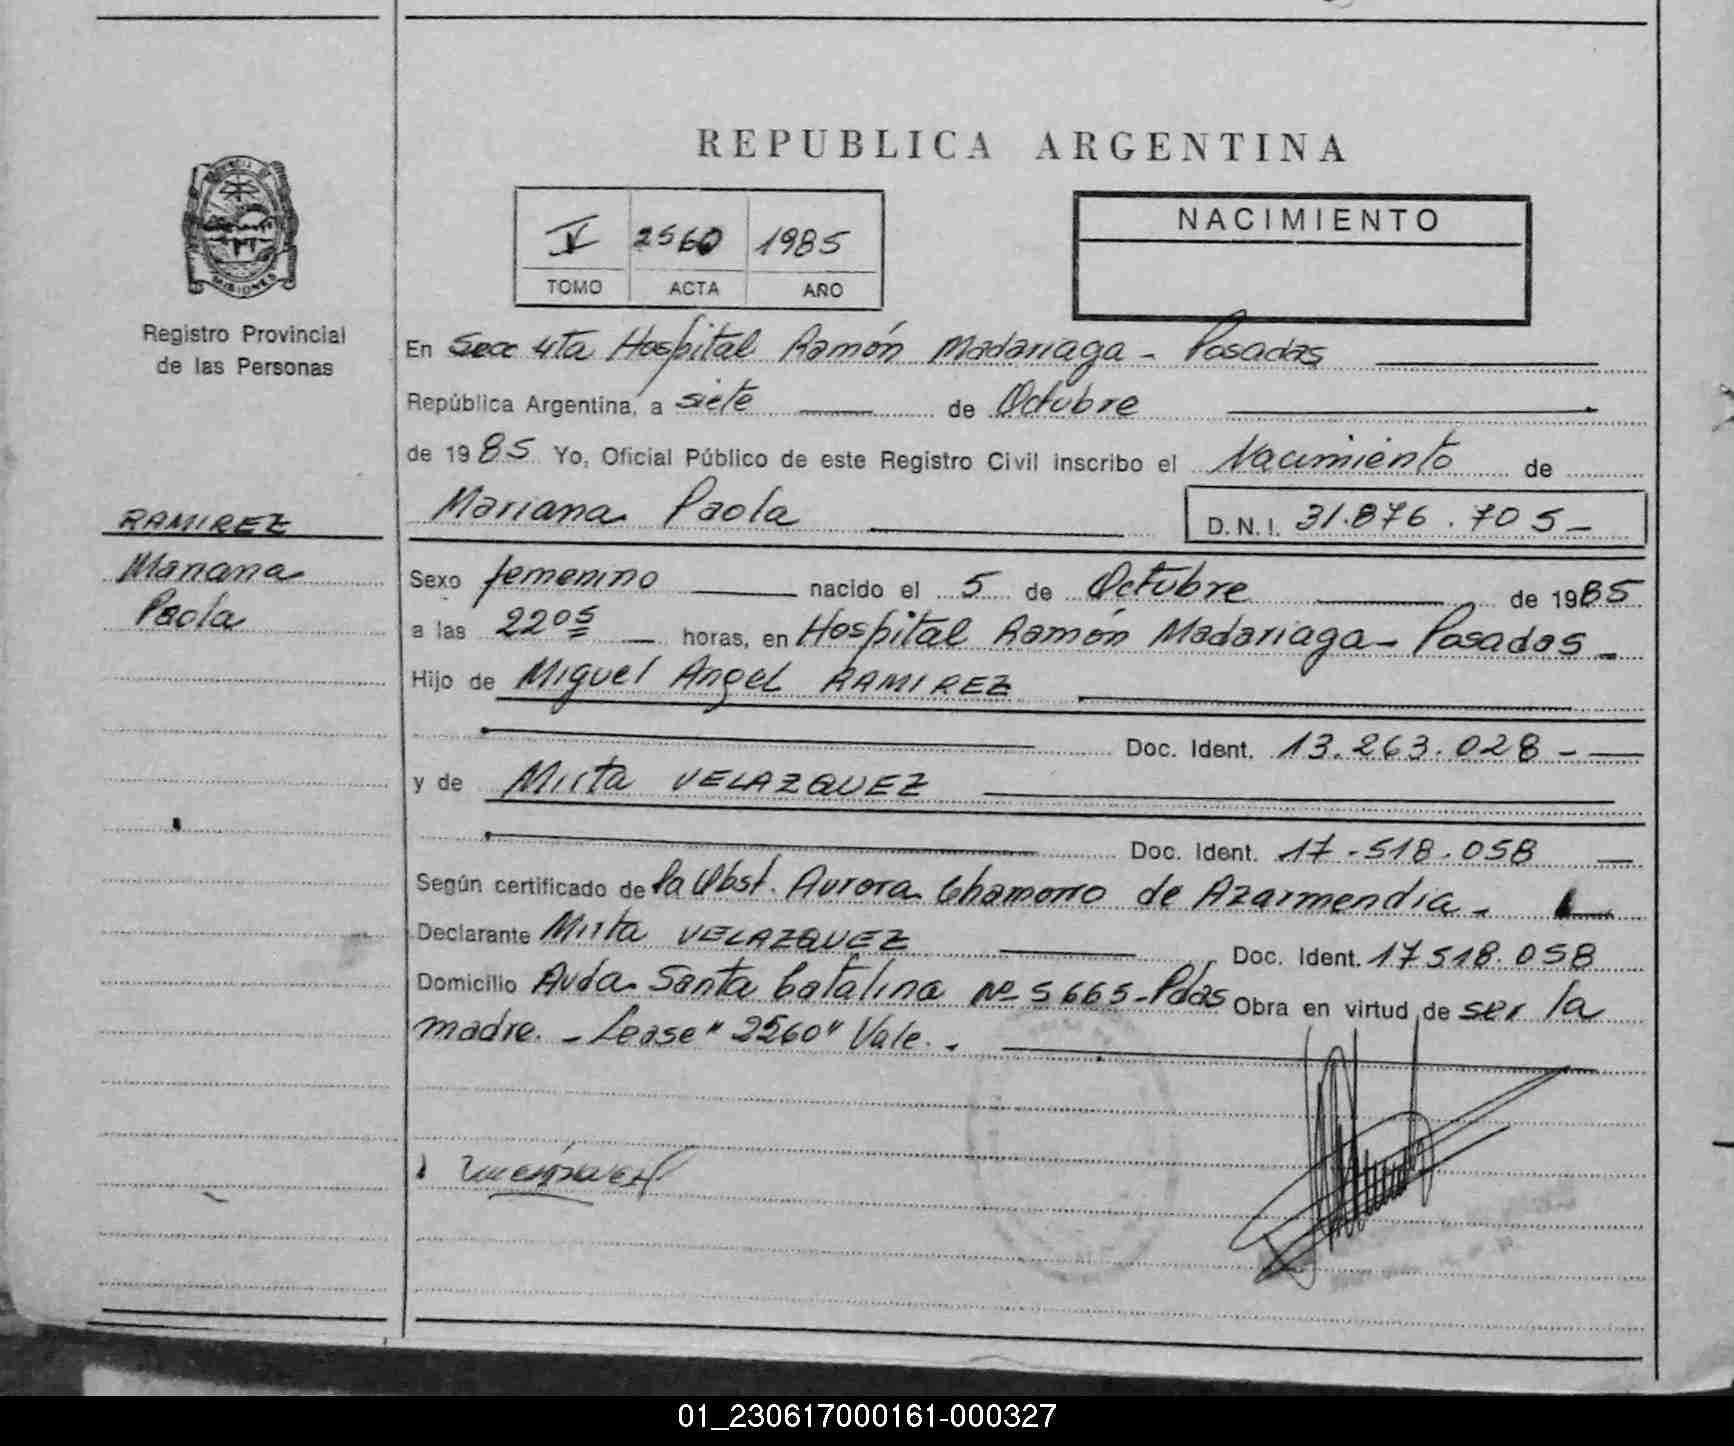 REPUBLICA ARGENTINA
MISIONES
Registro Provincial
de las Personas
V 2560 1985
TOMO ACTA AÑO
NACIMIENTO
En Secc 4ta Hospital Ramón Madariaga - Posadas
República Argentina, a siete de Octubre
de 1985 Yo, Oficial Público de este Registro Civil inscribo el Nacimiento de
Mariana Paola D.N.I. 31.876.705-
RAMIREZ
Mariana
Paola
Sexo femenino nacido el 5 de Octubre de 1985
a las 2205 horas, en Hospital Ramón Madariaga - Posadas -
Hijo de Miguel Angel RAMIREZ
Doc. Ident. 13.263.028 -
y de Mirta VELAZQUEZ
Doc. Ident. 17.518.058
Según certificado de la Obst. Aurora Chamorro de Azarmendia -
Declarante Mirta VELAZQUEZ Doc. Ident. 17518.058
Domicilio Avda. Santa Catalina Nº 5665 - Pdas Obra en virtud de ser la
madre. - Lease "2560" Vale. -
01_230617000161-000327